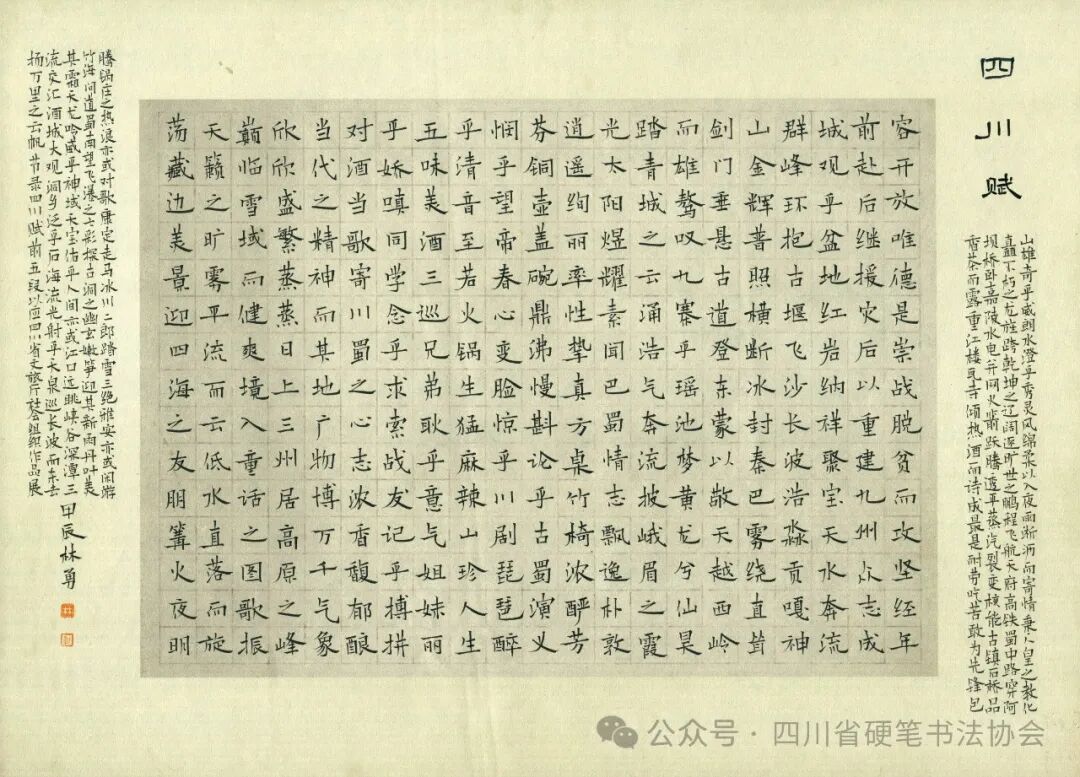 四川赋
山雄奇乎威朗水澄乎秀灵风绵柔以入夜雨淅沥而寄情秉人皇之教化
矗不朽之龙旌跨乾坤之辽阔逐旷世之鹏程飞航天府高铁蜀中路穿阿
坝桥卧嘉陵水电并网火箭跃腾透平蒸汽裂变核能古镇石桥品
香茶而露重江楼瓦寺倾热酒而诗成最是耐劳吃苦敢为先锋包
容开放唯德是崇战脱贫而攻坚经年
前赴后继援灾后以重建九州众志成
城观乎盆地红岩纳祥聚宝天水奔流
群峰环抱古堰飞沙长波浩淼贡嘎神
山金辉普照横断冰封秦巴雾绕直耸
剑门垂悬古道登东蒙以敬天越西岭
而雄鹜叹九寨乎瑶池梦黄龙兮仙昊
踏青城之云涌浩气奔流披峨眉之霞
光太阳煜耀素闻巴蜀情志飘逸朴敦
逍遥绚丽率性挚真方桌竹椅浓酽芳
芬铜壶盖碗鼎沸慢斟论乎古蜀演义
悯乎望帝春心变脸惊乎川剧琵琶醉
乎清音至若火锅生猛麻辣山珍人生
五味美酒三巡兄弟耿乎意气姐妹丽
乎娇嗔同学念乎求索战友记乎搏拼
对酒当歌寄川蜀之心志浓香馥郁酿
当代之精神而其地广物博万千气象
欣欣盛繁蒸蒸日上三州居高原之峰
巅临雪域而健爽境入童话之图歌振
天籁之旷雾平流而云低水直落而旋
荡藏边美景迎四海之友朋篝火夜明
腾锅庄之热浪亦或对歌康定走马冰川二郎踏雪三绝雅安亦或闲游
竹海问道蜀南望飞瀑之七彩探古洞之幽玄嫩笋迎其新雨丹叶美
其霜天龙吟威乎神域天宝佑乎人间亦或江口远眺峡谷深潭三
流交汇酒城大观洞乡泛乎石海流光射乎大泉巡长波而东去
扬万里之云帆节录四川赋前五段以应四川省文旅厅社会组织作品展
甲辰林勇
公众号·四川省硬笔书法协会